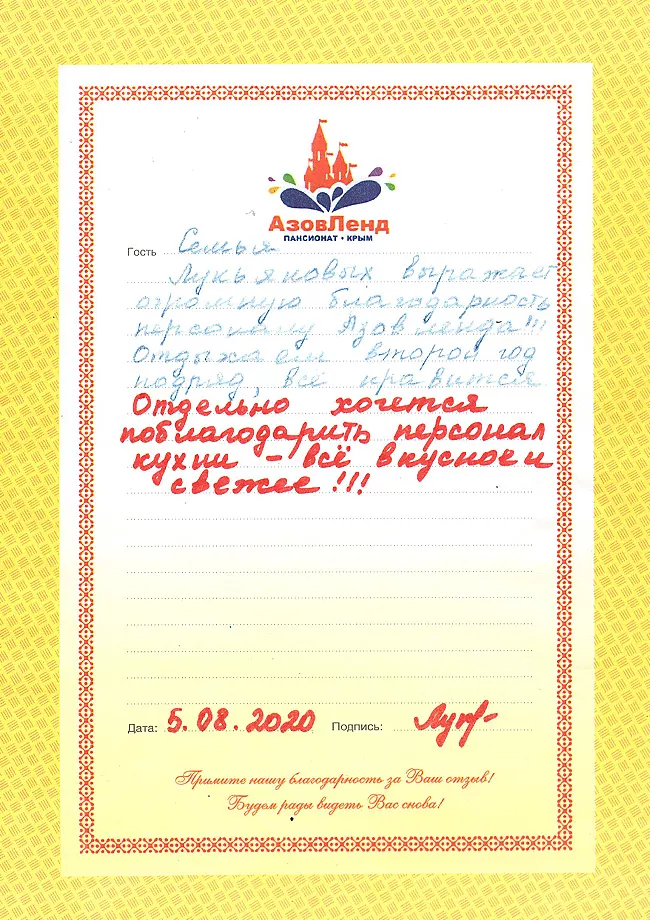 АзовЛенд
ПАНСИОНАТ • КРЫМ
Гость Семья
Лукьяновых выражает
огромную благодарность
персоналу Азовленда!!!
Отдыхаем второй год
подряд, всё нравится
Отдельно хочется
поблагодарить персонал
кухни – всё вкусное и
свежее!!!
Дата: 5.08.2020 Подпись:
Примите нашу благодарность за Ваш отзыв!
Будем рады видеть Вас снова!